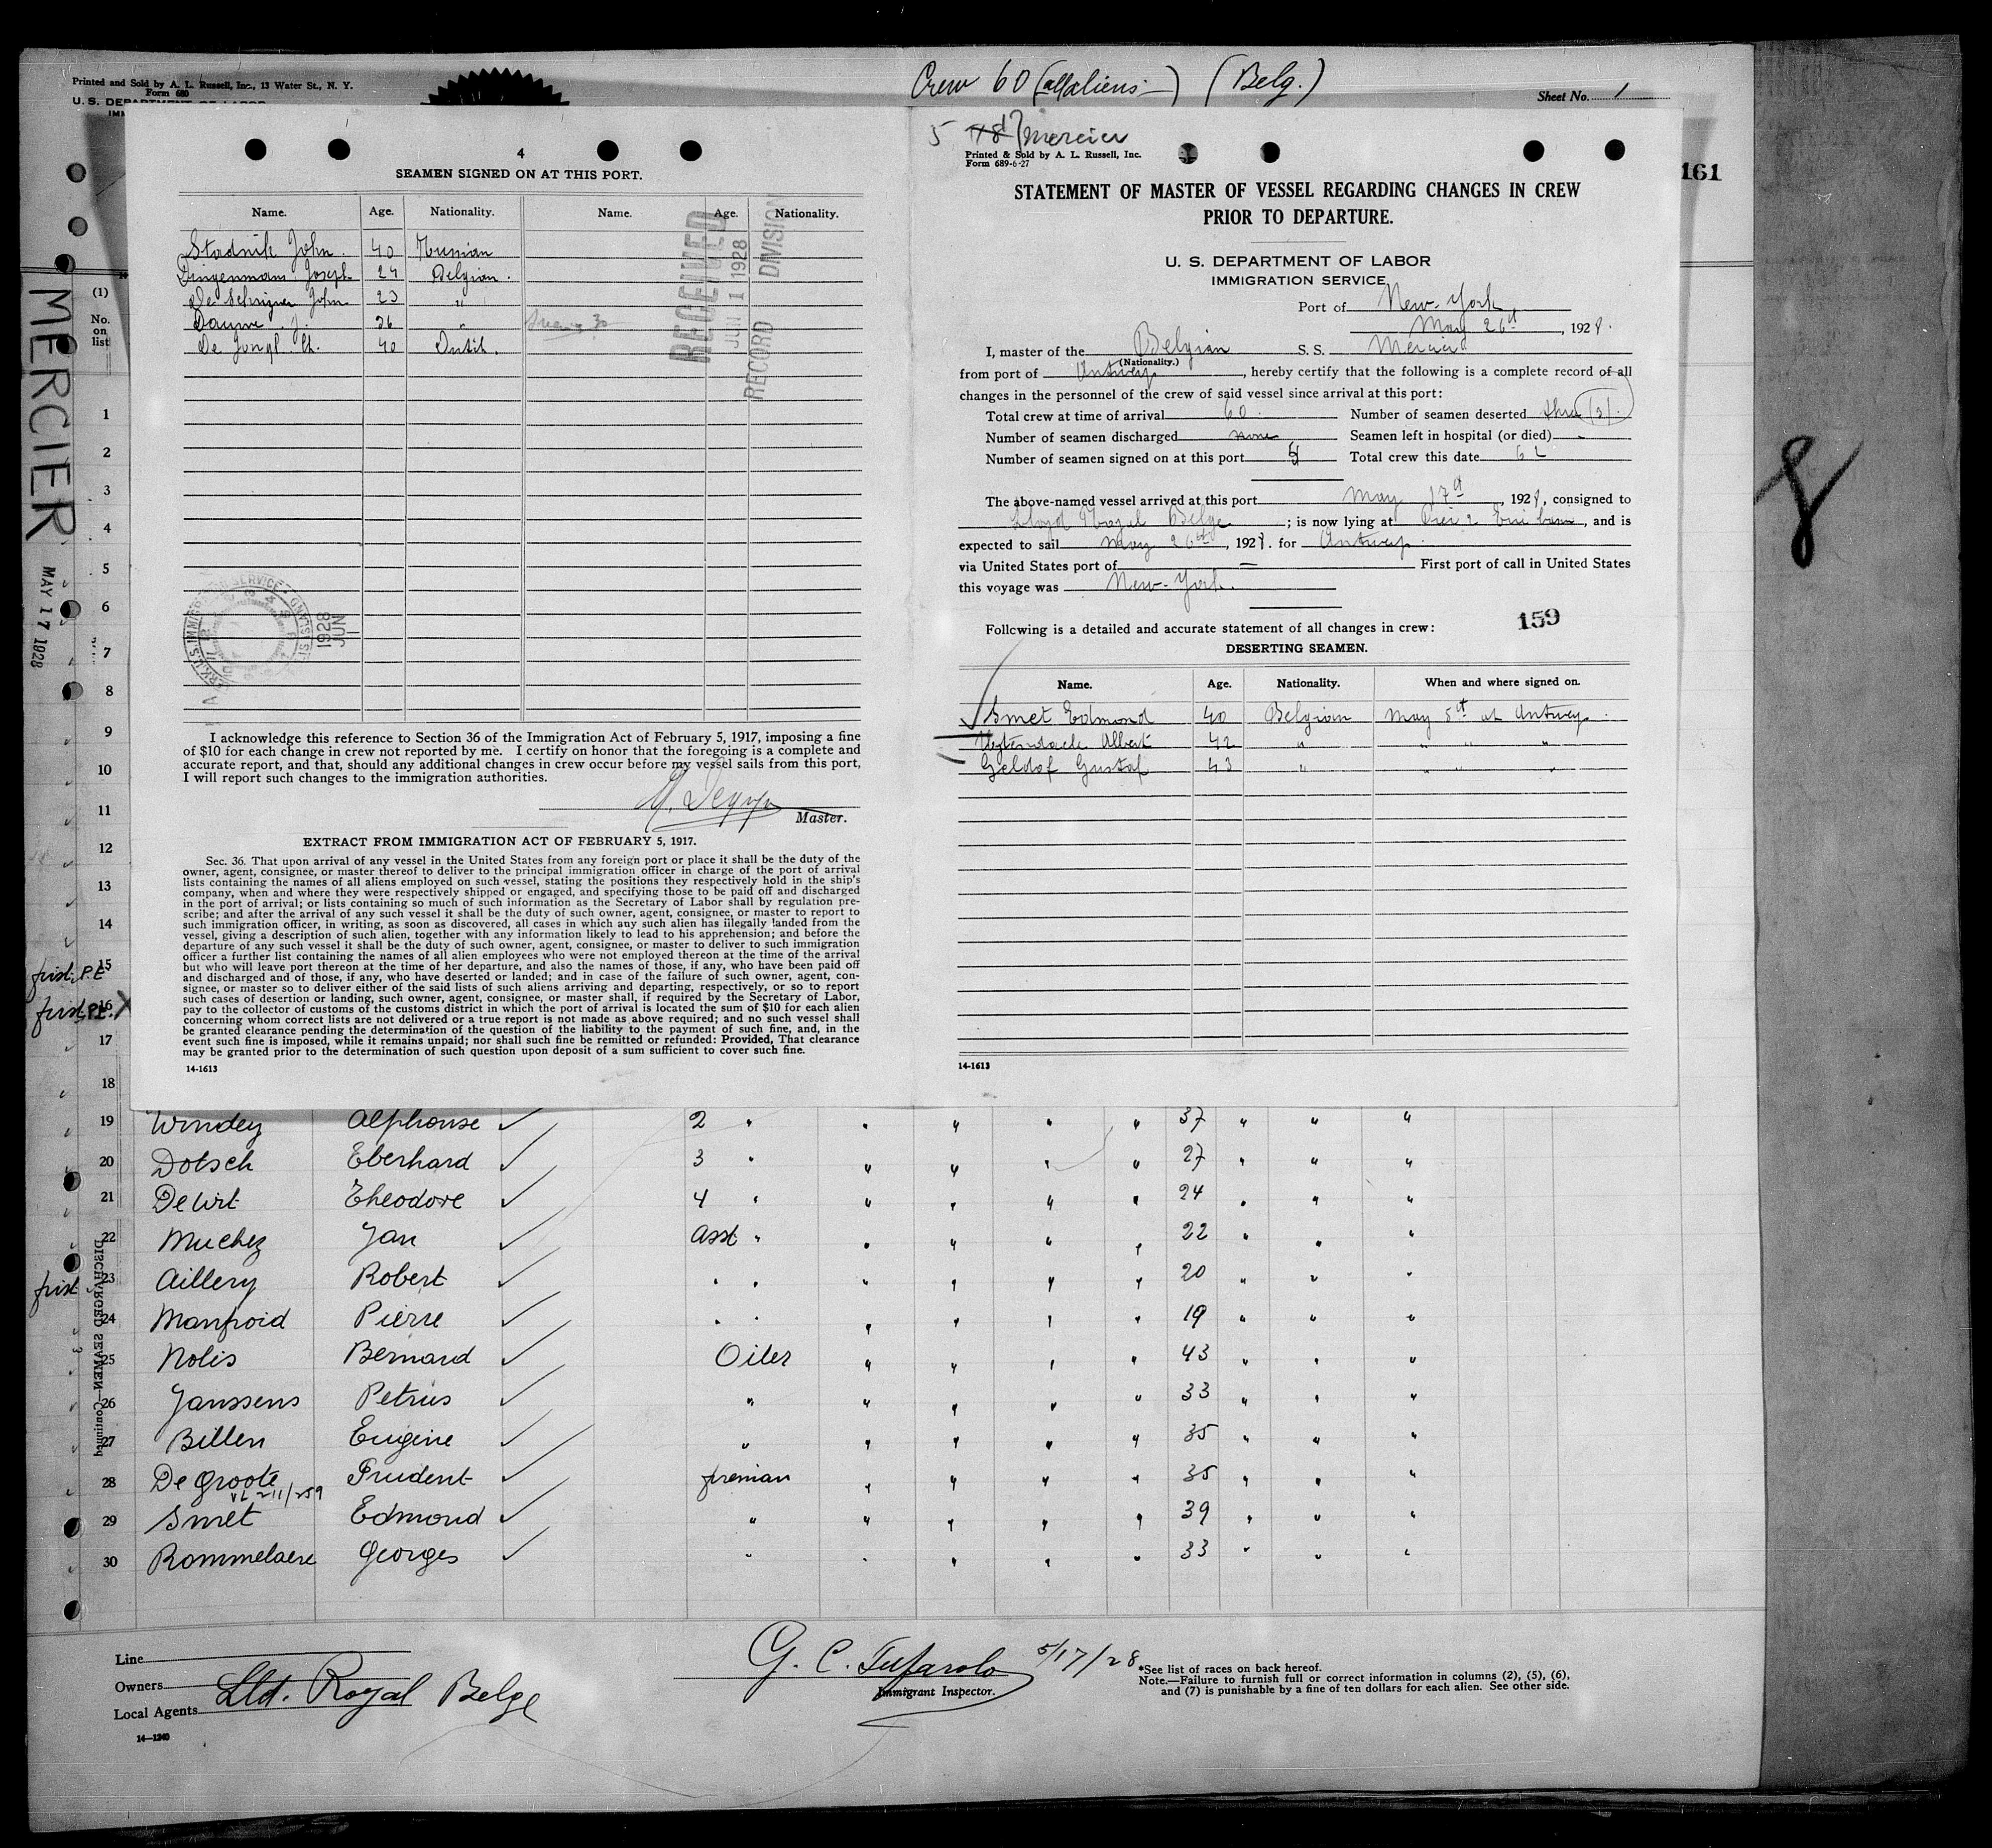 Printed and Sold by A. L. Russell, Inc., 13 Water St., N. Y.
Form 680
U. S. DEPARTMENT OF LABOR
Crew 60 (all aliens-) (Belg.)
Sheet No. 1
161
MERCIER
MAY 17 1928
(1)
No.
on
list
4
SEAMEN SIGNED ON AT THIS PORT.
Name. Age. Nationality. Name. Age. Nationality.
Stadnik John. 40 Russian
Dingenman Joseph 24 Belgian.
De Schrijner John 23 "
Dauwe. J. 26 "
De Jongh. Ch. 40 Dutch.
RECEIVED
JUN 1 1928
RECORD DIVISION
1928
JUN
I acknowledge this reference to Section 36 of the Immigration Act of February 5, 1917, imposing a fine
of $10 for each change in crew not reported by me. I certify on honor that the foregoing is a complete and
accurate report, and that, should any additional changes in crew occur before my vessel sails from this port,
I will report such changes to the immigration authorities.
Master.
EXTRACT FROM IMMIGRATION ACT OF FEBRUARY 5, 1917.
Sec. 36. That upon arrival of any vessel in the United States from any foreign port or place it shall be the duty of the
owner, agent, consignee, or master thereof to deliver to the principal immigration officer in charge of the port of arrival
lists containing the names of all aliens employed on such vessel, stating the positions they respectively hold in the ship's
company, when and where they were respectively shipped or engaged, and specifying those to be paid off and discharged
in the port of arrival; or lists containing so much of such information as the Secretary of Labor shall by regulation pre-
scribe; and after the arrival of any such vessel it shall be the duty of such owner, agent, consignee, or master to report to
such immigration officer, in writing, as soon as discovered, all cases in which any such alien has illegally landed from the
vessel, giving a description of such alien, together with any information likely to lead to his apprehension; and before the
departure of any such vessel it shall be the duty of such owner, agent, consignee, or master to deliver to such immigration
officer a further list containing the names of all alien employees who were not employed thereon at the time of the arrival
but who will leave port thereon at the time of her departure, and also the names of those, if any, who have been paid off
and discharged and of those, if any, who have deserted or landed; and in case of the failure of such owner, agent, con-
signee, or master so to deliver either of the said lists of such aliens arriving and departing, respectively, or so to report
such cases of desertion or landing, such owner, agent, consignee, or master shall, if required by the Secretary of Labor,
pay to the collector of customs of the customs district in which the port of arrival is located the sum of $10 for each alien
concerning whom correct lists are not delivered or a true report is not made as above required; and no such vessel shall
be granted clearance pending the determination of the question of the liability to the payment of such fine, and, in the
event such fine is imposed, while it remains unpaid; nor shall such fine be remitted or refunded: Provided, That clearance
may be granted prior to the determination of such question upon deposit of a sum sufficient to cover such fine.
14-1613
5 Mercier
Printed & Sold by A. L. Russell, Inc.
Form 689-6-27
STATEMENT OF MASTER OF VESSEL REGARDING CHANGES IN CREW
PRIOR TO DEPARTURE.
U. S. DEPARTMENT OF LABOR
IMMIGRATION SERVICE
Port of New-York
May 26th, 1928.
I, master of the Belgian S. S. Mercier
(Nationality.)
from port of Antwerp, hereby certify that the following is a complete record of all
changes in the personnel of the crew of said vessel since arrival at this port:
Total crew at time of arrival 60. Number of seamen deserted three (3).
Number of seamen discharged none Seamen left in hospital (or died) -
Number of seamen signed on at this port 5 Total crew this date 62
The above-named vessel arrived at this port May 17th, 1928, consigned to
Lloyd Royal Belge; is now lying at Pier 2 Erie basin, and is
expected to sail May 26th, 1928. for Antwerp.
via United States port of — First port of call in United States
this voyage was New-York.
159
Following is a detailed and accurate statement of all changes in crew:
DESERTING SEAMEN.
Name. Age. Nationality. When and where signed on.
Smet Edmond 40 Belgian May 5th at Antwerp.
Albert 42 " " " "
Geldof Gustaf 43 " " " "
14-1613
8
1
2
3
4
5
6
7
8
9
10
11
12
13
14
first P.E. 15
first P.E. X 16
17
18
19 Windey Alphonse ✓ 2 " " " " " 37 " " "
20 Dotsch Eberhard ✓ 3 " " " " " 27 " " "
21 De Wit Theodore ✓ 4 " " " " " 24 " " "
22 Muchez Jan ✓ Asst " " " " " 22 " " "
first 23 Aillery Robert ✓ " " " " " " 20 " " "
24 Manfroid Pierre ✓ " " " " " " 19 " " "
25 Nolis Bernard ✓ Oiler " " " " 43 " " "
26 Janssens Petrus ✓ " " " " " 33 " " "
27 Billen Eugène ✓ " " " " " 35 " " "
28 De Groote Prudent ✓ fireman " " " " 35 " " "
VL 211/259
29 Smet Edmond ✓ " " " " " 39 " " "
30 Rommelaere Georges ✓ " " " " " 33 " " "
DISCHARGED SEAMEN—Continued
Line
Owners
Local Agents Lld. Royal Belge
14—1240
G. C. Tufarolo 5/17/28
Immigrant Inspector.
*See list of races on back hereof.
Note.—Failure to furnish full or correct information in columns (2), (5), (6),
and (7) is punishable by a fine of ten dollars for each alien. See other side.